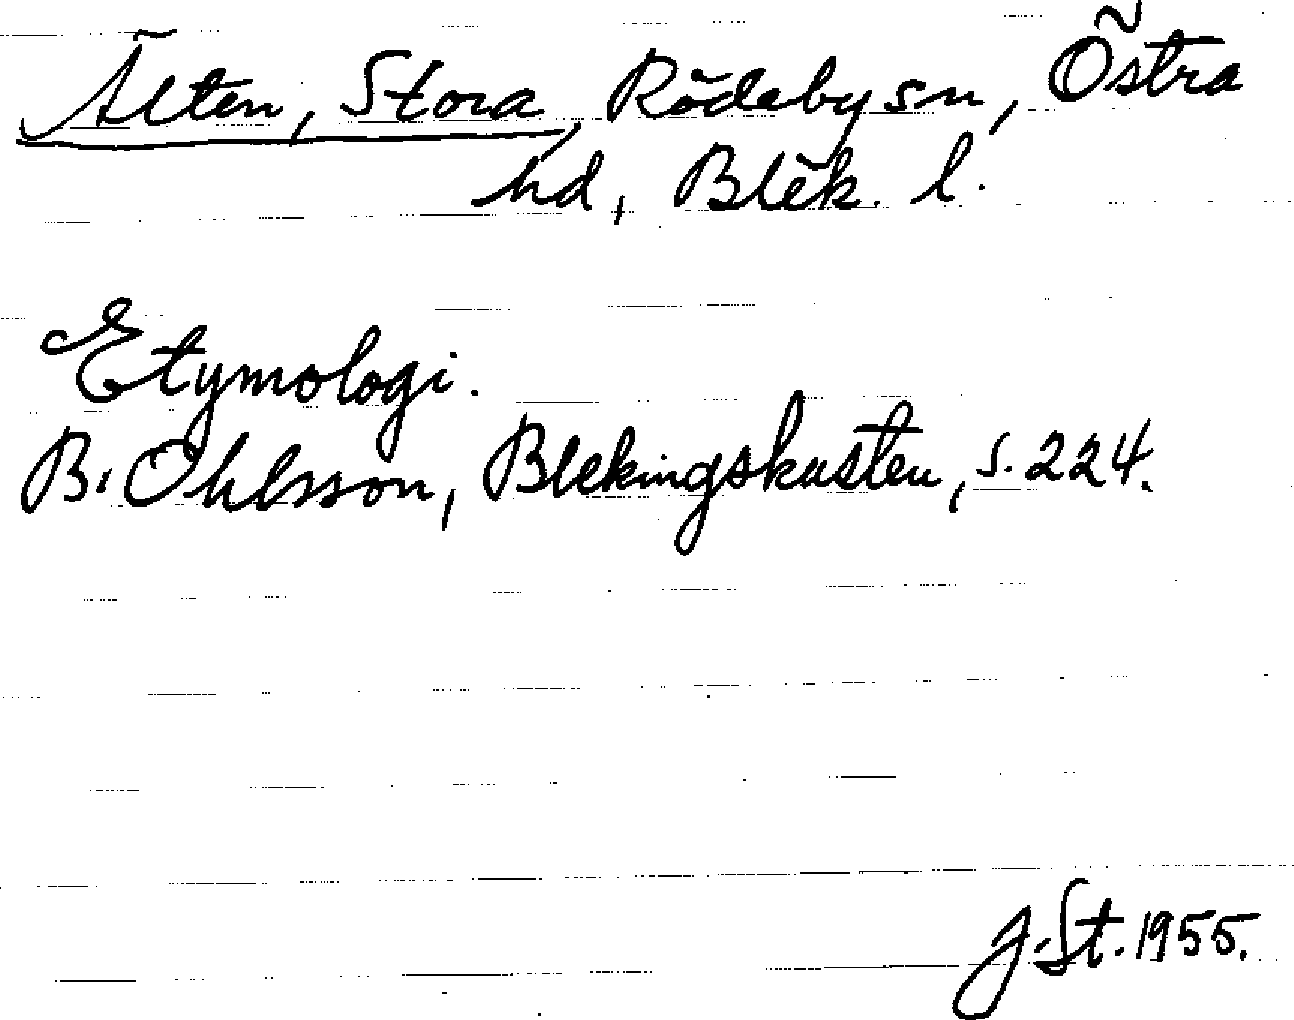 Älten, Stora, Rödeby sn, Östra
hd, Blek. l.
Etymologi.
B. Ohlsson, Blekingskusten, s. 224.
J. St. 1955.